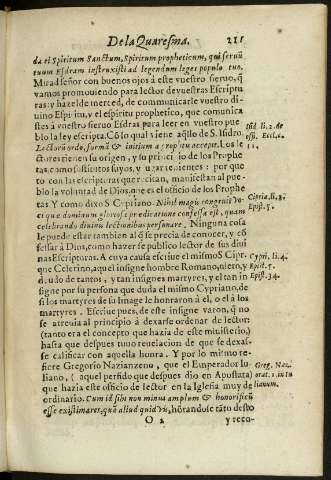 De la Quaresma. 211
da el Spiritum Sanctum, Spiritum propheticum, qui seruũ
tuum Esdram instruxisti ad legendum leges populo tuo.
Mirad señor con buenos ojos à este vuestro sieruo, q̃
vamos promouiendo para lector de vuestras Escriptu
ras: y hazelde merced, de comunicarle vuestro di
uino Espiritu, y el espiritu prophetico, que comunica
stes à vuestro sieruo Esdras para leer en vuestro pue
blo la ley escripta. Cõ lo qual viene aq̃llo de S. Isidro
Isid. li. 2. de
offi. Eccl. c.
11.
Lectorũ ordo, formã & initium a prophetis accepit. Los le
ctores tienen su origen, y su principio de los Prophe
tas, como substitutos suyos, y lugartenientes: por que
to con las escripturas que predican, manifiestan al pue-
blo la voluntad de Dios, que es el officio de los Prophe
tas. Y como dixo S. Cypriano. Nihil magis congruit vo
Cipria. li. 2.
Epist. 5.
ci que dominum gloriosa predicatione confessa est, quam
celebrandis diuinis lectionibus personare. Ninguna cosa
le puede estar tambien al q̃ se precia de conocer, y cõ
fessar à Dios, como hazerse publico lector de sus diui
nas Escripturas. A cuya causa escriue el mismo S. Cipr.
Cypri. li. 4.
Epist. 5.
Epist. 34.
que Celerino, aquel insigne hombre Romano, nieto, y
dudo de tantos, y tan insignes martyres, y el tan in
signe por su persona que duda el mismo Cypriano, de
si los martyres de su linage le honraron à el, o el à los
martyres. Escriue pues, de este insigne varon, q̃ no
se atreuia al principio à dexarse ordenar de lector:
(tanto era el concepto que hazia de este ministerio,)
hasta que despues tuuo reuelacion de que se dexas-
se calificar con aquella honra. Y por lo mismo re-
fiere Gregorio Nazianzeno, que el Emperador Iu-
Greg. Naz.
orat. 1. in Iu
lianum.
liano, (aquel perfido que despues dio en Apostata)
que hazia este officio de lector en la Iglesia muy de
ordinario. Cum id sibi non minus amplum & honorificũ
esse existimaret, quã aliud quid vis, hõrandose tãto desto
O 2 y reco-